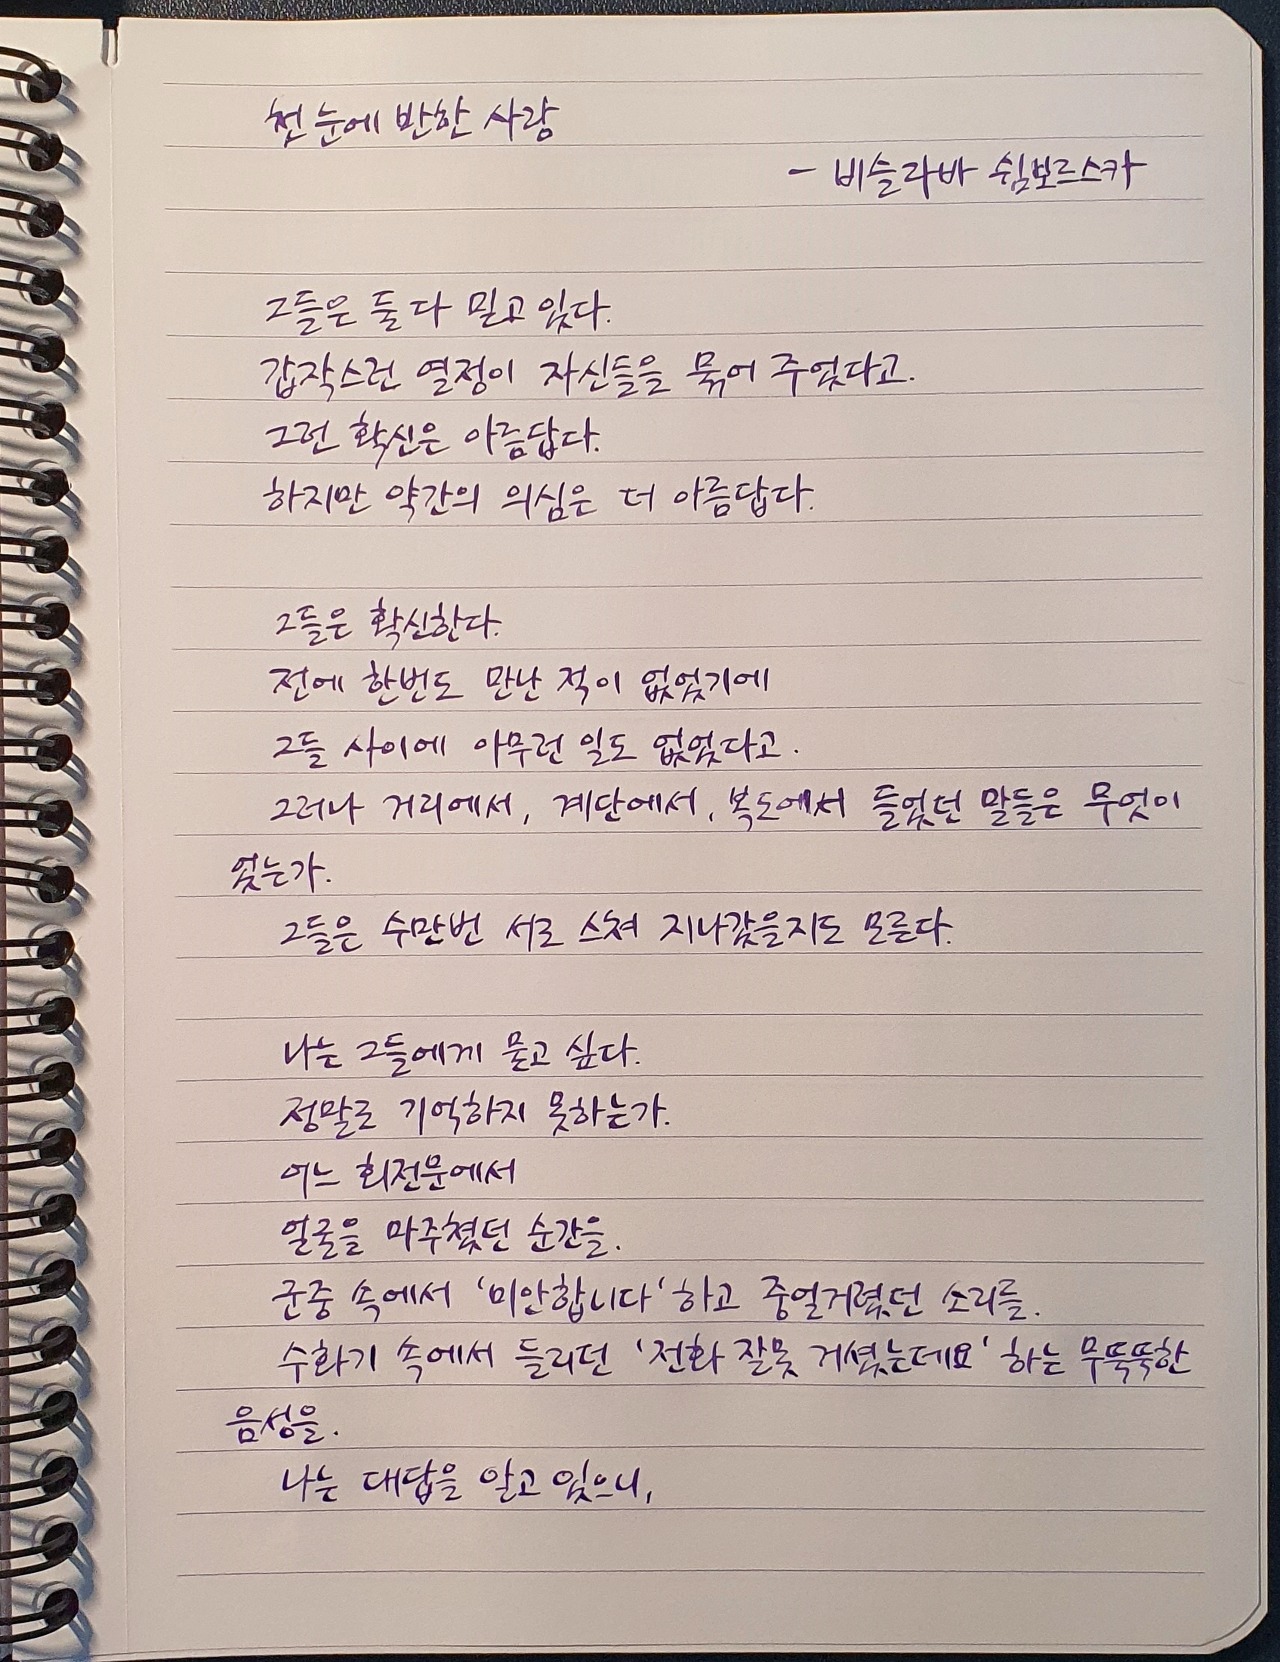 첫눈에 반한 사랑
- 비슬라바 쉼보르스카
그들은 둘 다 믿고 있다.
갑작스런 열정이 자신들을 묶어 주었다고.
그런 확신은 아름답다.
하지만 약간의 의심은 더 아름답다.
그들은 확신한다.
전에 한번도 만난 적이 없었기에
그들 사이에 아무런 일도 없었다고.
그러나 거리에서, 계단에서, 복도에서 들었던 말들은 무엇이
었는가.
그들은 수만번 서로 스쳐 지나갔을지도 모른다.
나는 그들에게 묻고 싶다.
정말로 기억하지 못하는가.
어느 회전문에서
얼굴을 마주쳤던 순간을.
군중 속에서 '미안합니다' 하고 중얼거렸던 소리를.
수화기 속에서 들리던 '전화 잘못 거셨는데요' 하는 무뚝뚝한
음성을.
나는 대답을 알고 있으니,